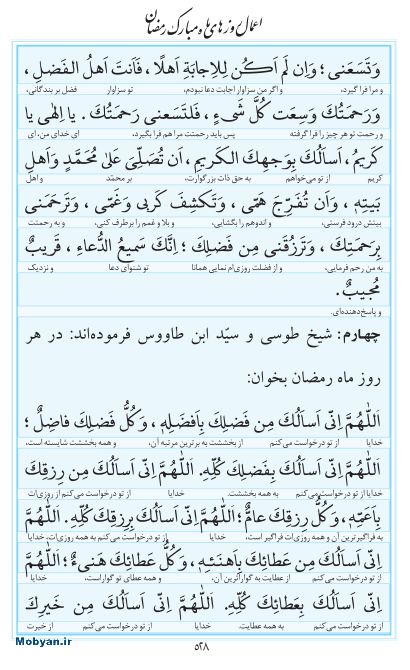 اعمال روزهای ماه مبارک رمضان
وَتَسَعَنی؛ وَاِن لَم اَکُن لِلاِجابَةِ اَهلًا، فَاَنتَ اَهلُ الفَضلِ،
و مرا فرا گیرد، و اگر من سزاوار اجابت دعا نبودم، تو سزاوار فضل بر بندگانی،
وَرَحمَتُكَ وَسِعَت كُلَّ شَیءٍ، فَلتَسَعنی رَحمَتُكَ. یا اِلٰهی یا
و رحمت تو هر چیز را فرا گرفته پس باید رحمتت مرا هم فرا بگیرد، ای خدای من، ای
کَریمُ، اَساَلُكَ بِوَجهِكَ الکَریمِ، اَن تُصَلِّیَ عَلیٰ مُحَمَّدٍ وَاَهلِ
کریم از تو می‌خواهم به حق ذات بزرگوارت، بر محمّد و اهل
بَیتِهٖ، وَاَن تُفَرِّجَ هَمّی، وَتَکشِفَ کَربی وَغَمّی، وَتَرحَمَنی
بیتش درود فرستی، و اندوهم را بگشایی، و بلا و غمم را برطرف کنی، و به رحمتت
بِرَحمَتِكَ، وَتَرزُقَنی مِن فَضلِكَ؛ اِنَّكَ سَمیعُ الدُّعاءِ، قَریبٌ
به من رحم فرمایی، و از فضلت روزی‌ام نمایی همانا تو شنوای دعا و نزدیک
مُجیبٌ.
و پاسخ‌دهنده‌ای.
چهارم: شیخ طوسی و سیّد ابن طاووس فرموده‌اند: در هر
روز ماه رمضان بخوان:
اَللّٰهُمَّ اِنّی اَساَلُكَ مِن فَضلِكَ بِاَفضَلِهٖ، وَکُلُّ فَضلِكَ فاضِلٌ؛
خدایا از تو درخواست می‌کنم از بخششت به برترین مرتبه آن، و همه بخششت شایسته است،
اَللّٰهُمَّ اِنّی اَساَلُكَ بِفَضلِكَ کُلِّهِ. اَللّٰهُمَّ اِنّی اَساَلُكَ مِن رِزقِكَ
خدایا از تو درخواست می‌کنم به همه بخششت. خدایا از تو درخواست می‌کنم از روزی‌ات
بِاَعَمِّهٖ، وَکُلُّ رِزقِكَ عامٌّ؛ اَللّٰهُمَّ اِنّی اَساَلُكَ بِرِزقِكَ کُلِّهِ. اَللّٰهُمَّ
به فراگیرترین آن، و همه روزی‌ات فراگیر است، خدایا از تو درخواست می‌کنم به همه روزی‌ات، خدایا
اِنّی اَساَلُكَ مِن عَطائِكَ بِاَهنَئِهٖ، وَکُلُّ عَطائِكَ هَنیءٌ؛ اَللّٰهُمَّ
از تو درخواست می‌کنم از عطایت به گواراترین آن، و همه عطای تو گواراست، خدایا
اِنّی اَساَلُكَ بِعَطائِكَ کُلِّهِ. اَللّٰهُمَّ اِنّی اَساَلُكَ مِن خَیرِكَ
از تو درخواست می‌کنم به همه عطایت. خدایا از تو درخواست می‌کنم از خیرت
۵۲۸
Mobyan.ir